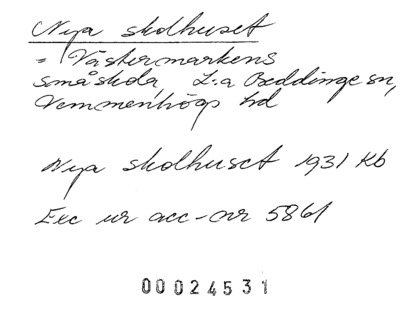 Nya skolhuset
= Västermarkens
småskola, L:a Beddinge sn,
Vemmenhögs hd
Nya skolhuset 1931 Kb
Exc ur acc-nr 5861
00024531